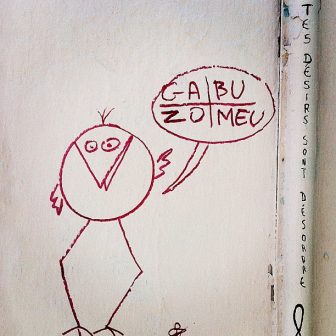 GA BU
ZO MEU
TES DÉSIRS SONT DÉSORDRE